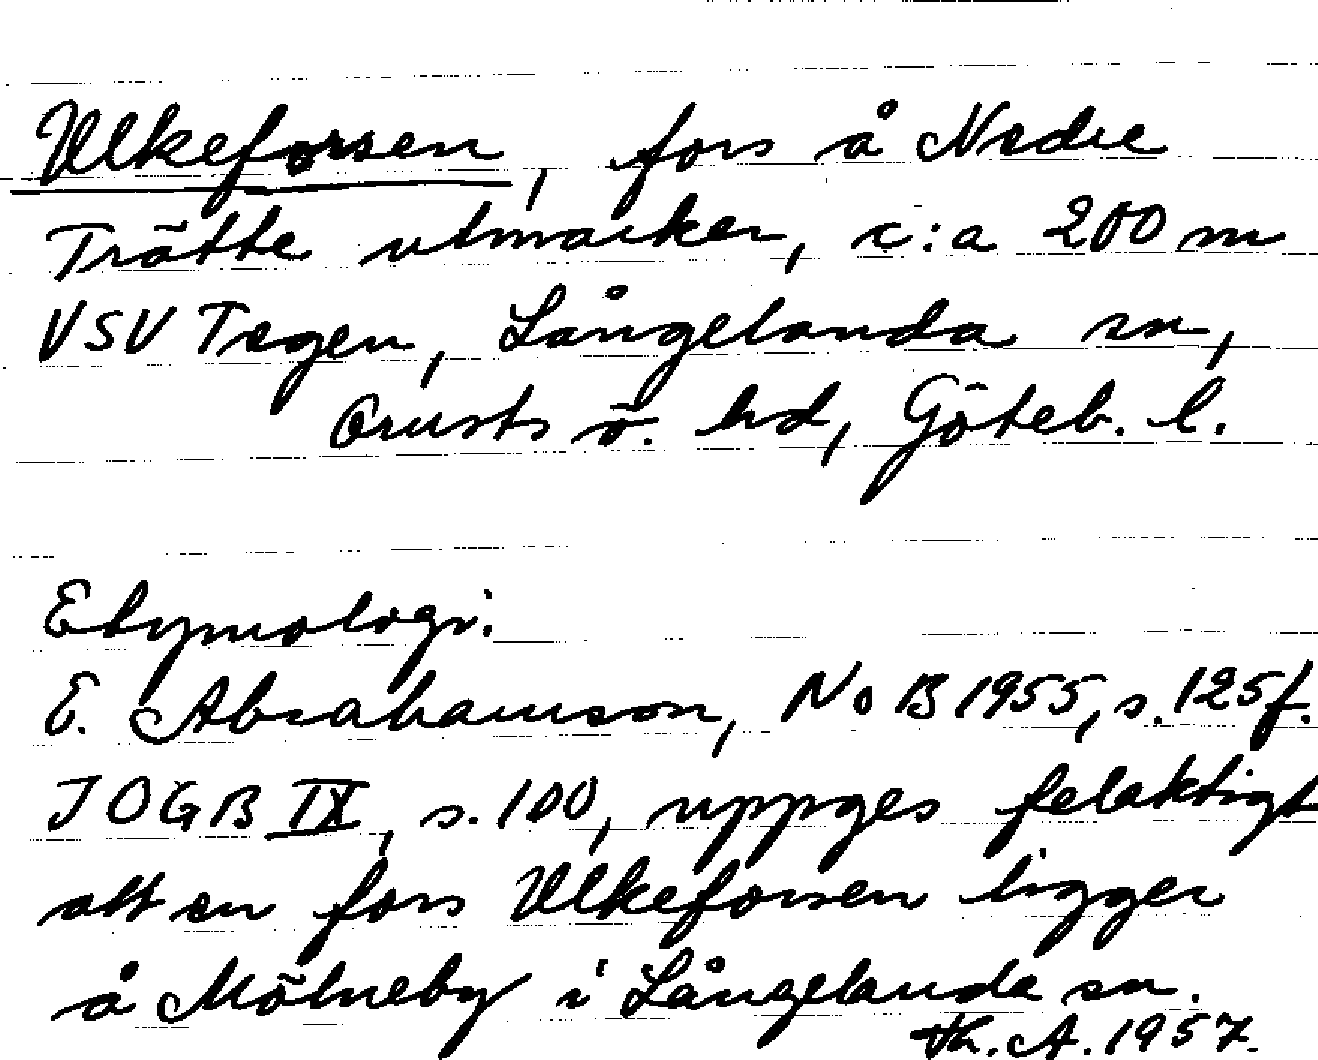 Ulkeforsen, fors å Nedre
Trätte utmarker, c:a 200 m
VSV Tegen, Långelanda sn,
Orusts ö. hd, Göteb. l.
Etymologi:
E. Abrahamson, NoB 1955, s. 125f.
I OGB IX, s. 100, uppges felaktigt
att en fors Ulkeforsen ligger
å Mölneby i Långelanda sn.
Th. A. 1957.